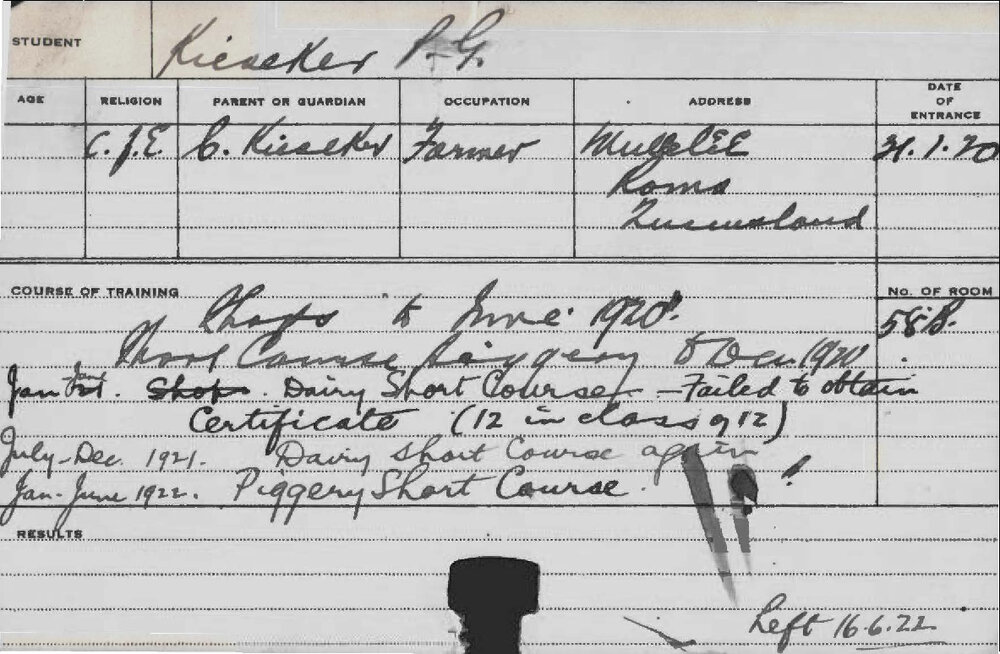 STUDENT Kieseker P.G.
AGE RELIGION PARENT OR GUARDIAN OCCUPATION ADDRESS DATE OF ENTRANCE
C.of.E. C. Kieseker Farmer 21.1.20
Roma
Queensland
COURSE OF TRAINING No. OF ROOM
Shops to June 1920. 58B.
Short Course Piggery to Dec. 1920
Jan - Shops. Dairy Short Course - Failed to obtain
Certificate (12 in class of 12)
July-Dec. 1921. Dairy Short Course again !
Jan-June 1922. Piggery Short Course.
RESULTS
Left 16.6.22